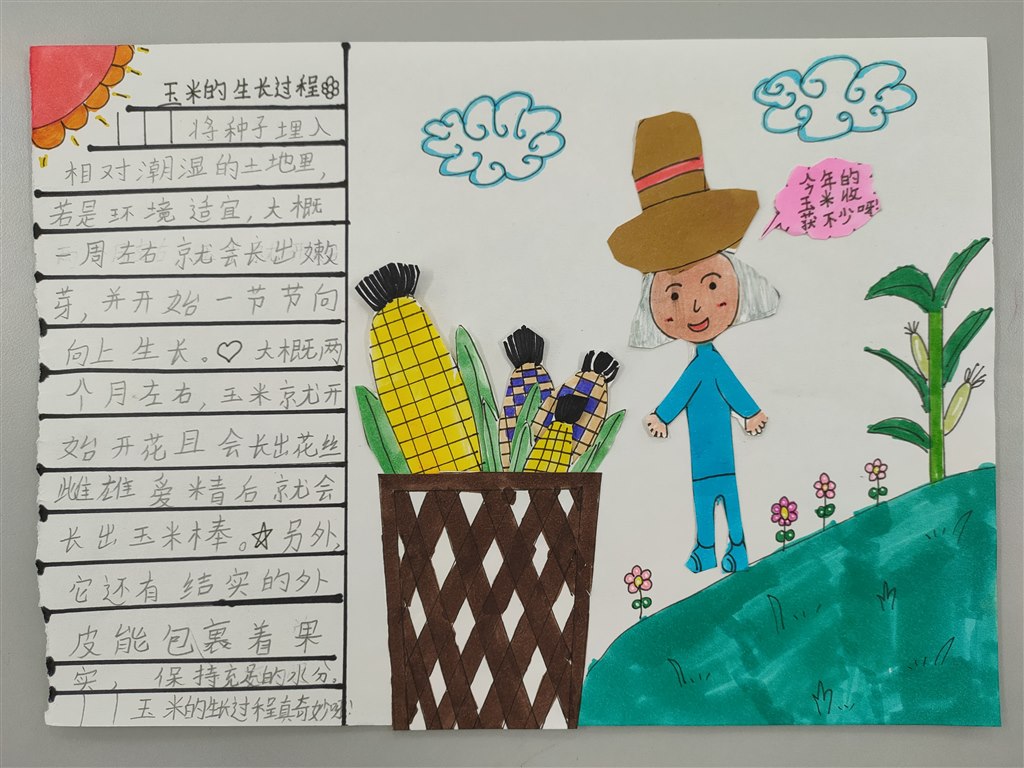 玉米的生长过程
将种子埋入
相对潮湿的土地里，
若是环境适宜，大概
一周左右就会长出嫩
芽，并开始一节节向
向上生长。♡大概两
个月左右，玉米就开
始开花且会长出花丝
雌雄爱精后就会
长出玉米棒。☆另外，
它还有结实的外
皮能包裹着果
实，保持充足的水分。
玉米的生长过程真奇妙呀！
今年的
玉米收
获不少呀！